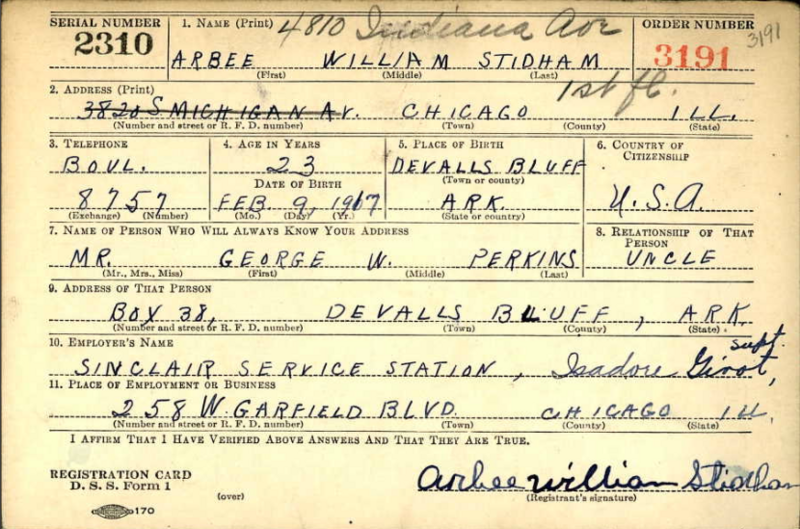 SERIAL NUMBER 1. NAME (Print) 4810 Indiana Ave ORDER NUMBER
2310 ARBEE WILLIAM STIDHAM 3191 3191
(First) (Middle) (Last)
2. ADDRESS (Print) 1st fl.
3820 S MICHIGAN AV. CHICAGO ILL.
(Number and street or R. F. D. number) (Town) (County) (State)
3. TELEPHONE 4. AGE IN YEARS 5. PLACE OF BIRTH 6. COUNTRY OF CITIZENSHIP
BOUL. 23 DEVALLS BLUFF
DATE OF BIRTH (Town or county)
8757 FEB. 9, 1917 ARK. U.S.A.
(Exchange) (Number) (Mo.) (Day) (Yr.) (State or country)
7. NAME OF PERSON WHO WILL ALWAYS KNOW YOUR ADDRESS 8. RELATIONSHIP OF THAT PERSON
MR. GEORGE W. PERKINS UNCLE
(Mr., Mrs., Miss) (First) (Middle) (Last)
9. ADDRESS OF THAT PERSON
BOX 38, DEVALLS BLUFF, ARK.
(Number and street or R. F. D. number) (Town) (County) (State)
10. EMPLOYER'S NAME supt.
SINCLAIR SERVICE STATION, Isadore Girot,
11. PLACE OF EMPLOYMENT OR BUSINESS
258 W GARFIELD BLVD. CHICAGO ILL.
(Number and street or R. F. D. number) (Town) (County) (State)
I AFFIRM THAT I HAVE VERIFIED ABOVE ANSWERS AND THAT THEY ARE TRUE.
REGISTRATION CARD Arbee William Stidham
D. S. S. Form 1 (over) (Registrant's signature)
170